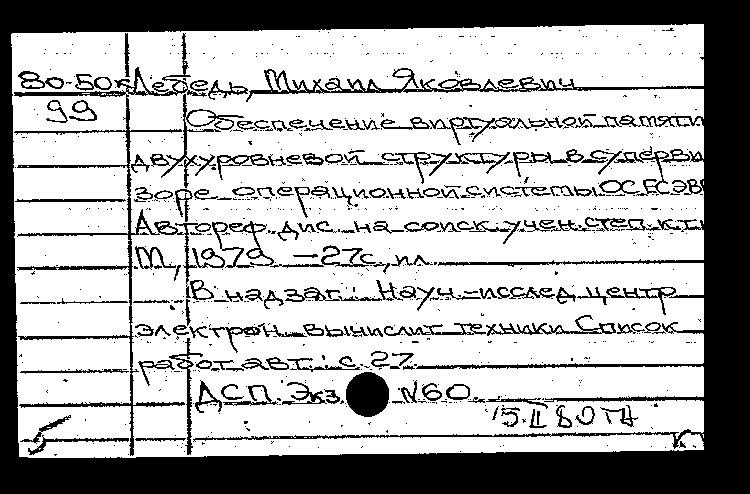 80-50к Лебедь, Михаил Яковлевич
99
Обеспечение виртуальной памяти
двухуровневой структуры в суперви
зоре операционной системы ОС ЕС ЭВМ
Автореф. дис. на соиск. учен. степ. к.т.
М, 1979 - 27с, ил
В надзаг.: Науч.-исслед. центр
электрон. вычислит. техники Список
работ авт.: с. 27.
ДСП. Экз. N60.
15.II 80
5
К